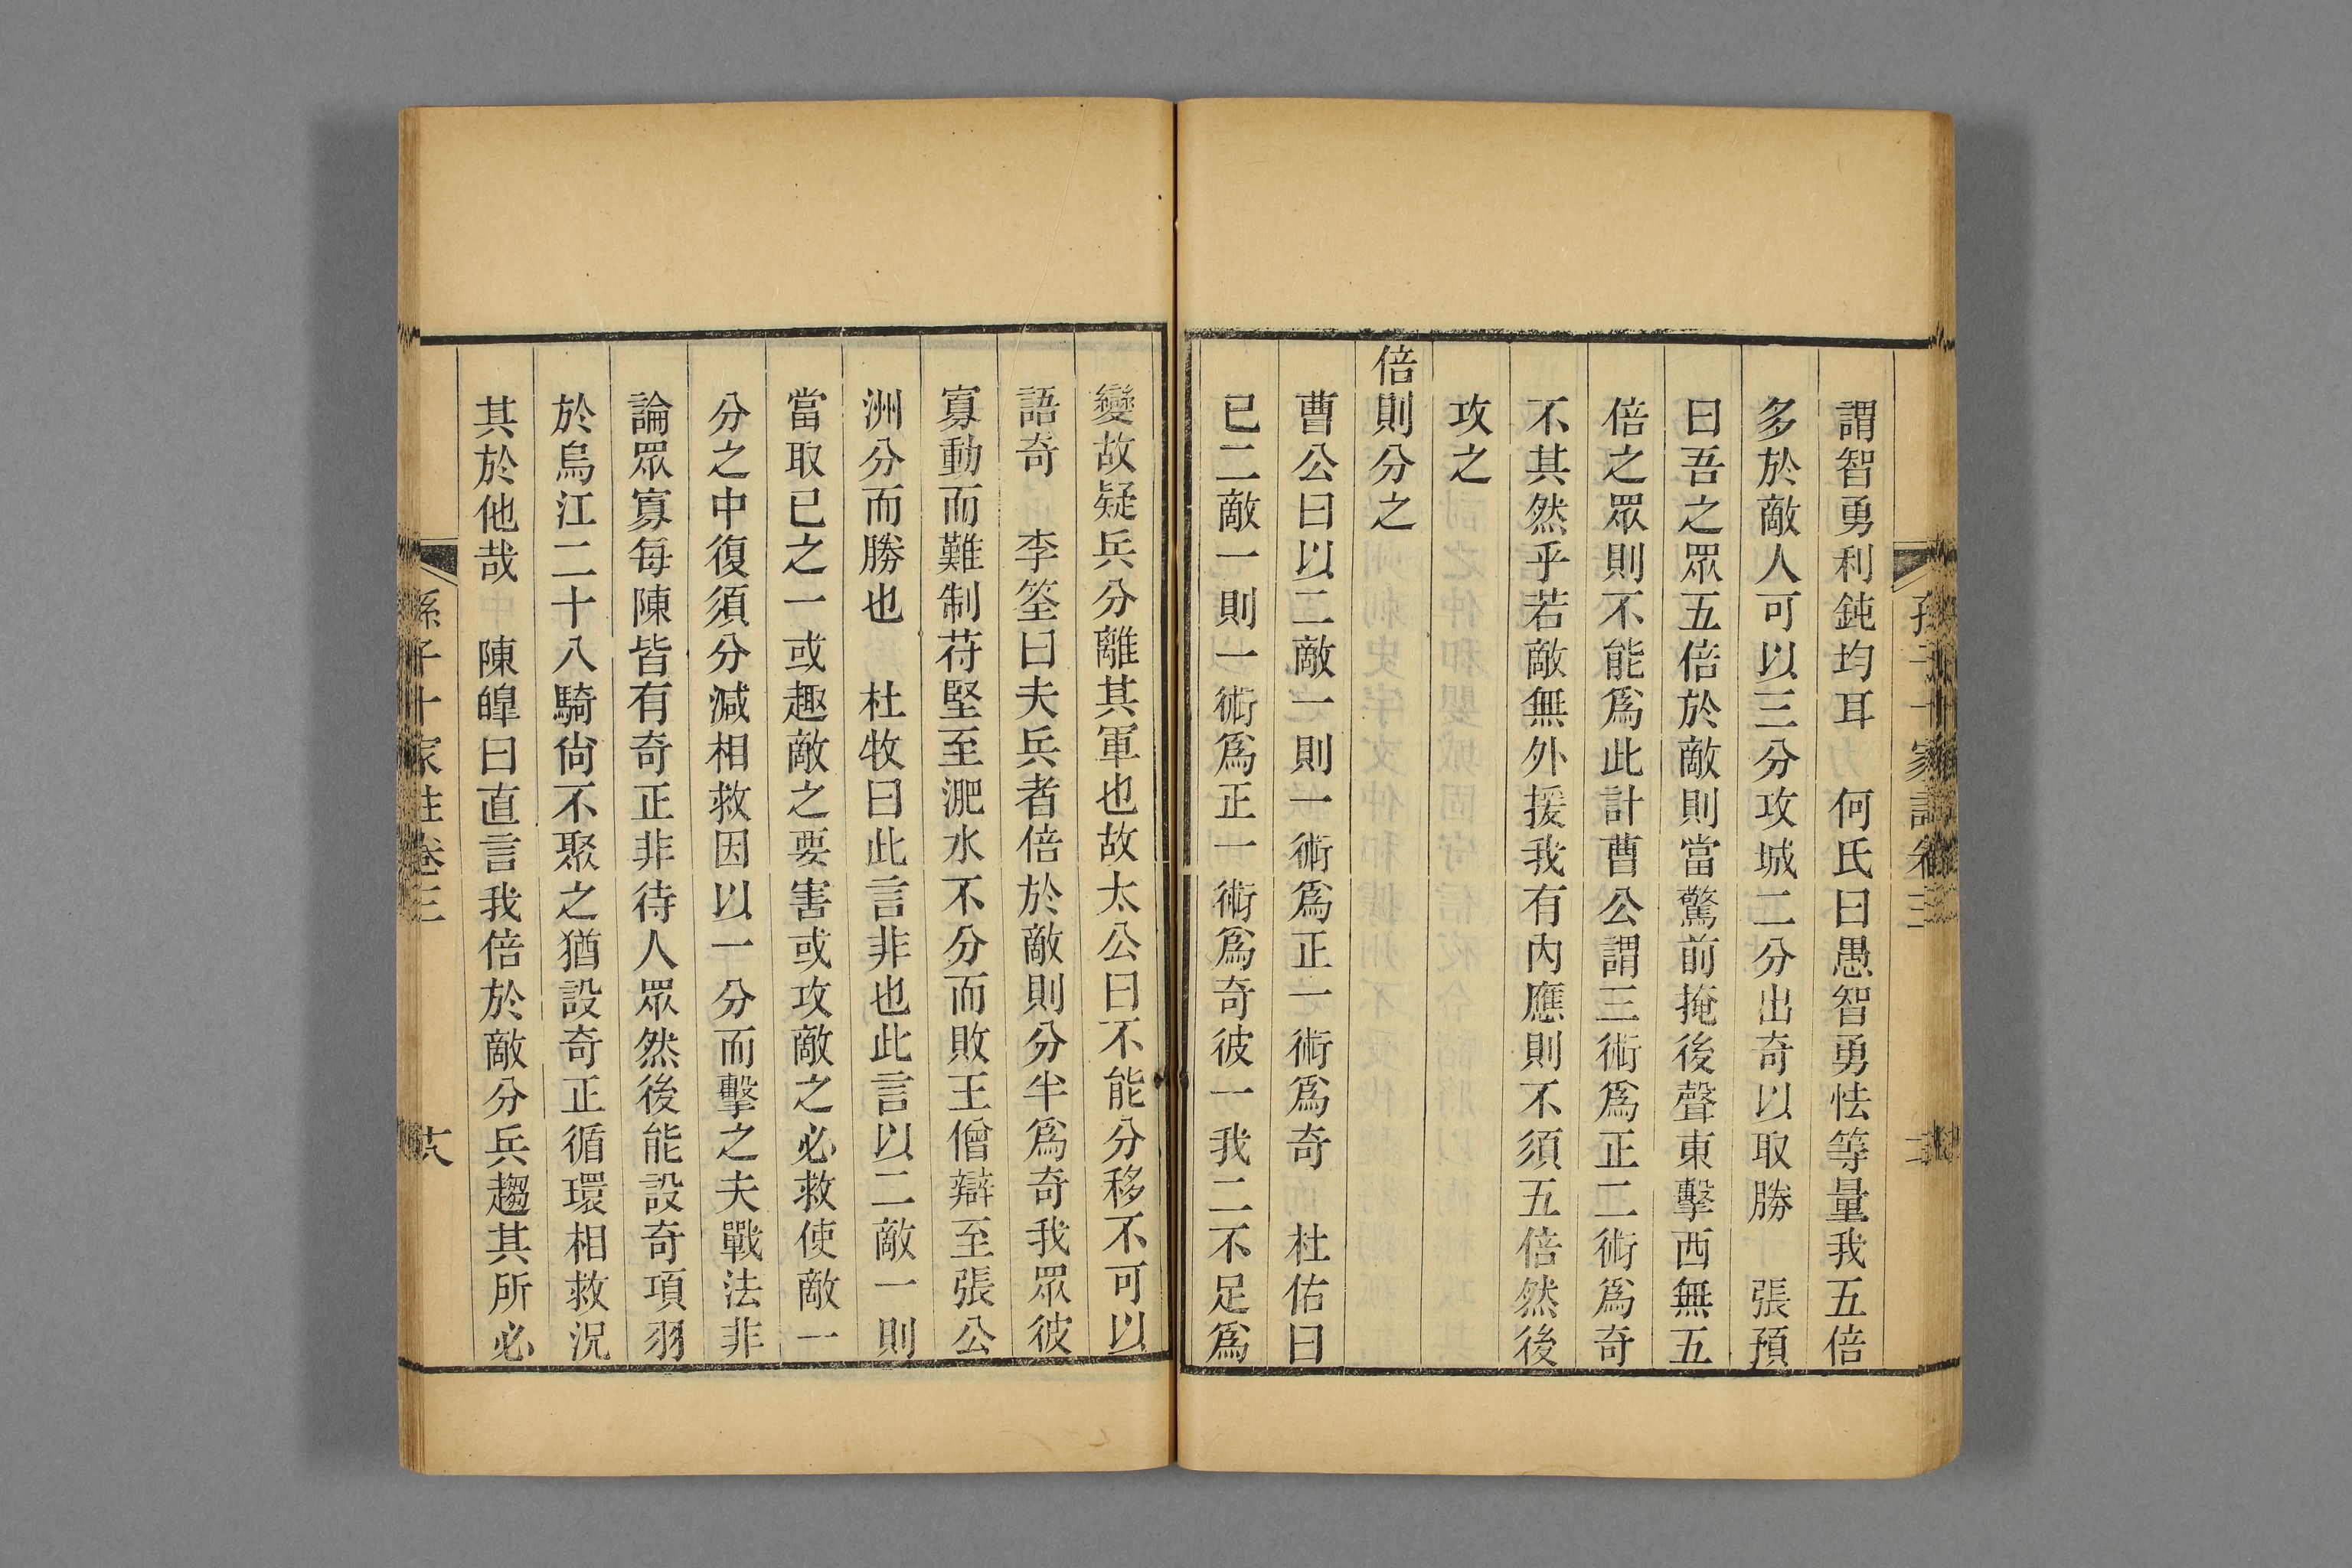 謂智勇利鈍均耳　何氏曰愚智勇怯等量我五倍
多於敵人可以三分攻城二分出奇以取勝　張預
曰吾之眾五倍於敵則當驚前掩後聲東擊西無五
倍之眾則不能爲此計曹公謂三術爲正二術爲奇
不其然乎若敵無外援我有內應則不須五倍然後
攻之
倍則分之
曹公曰以二敵一則一術爲正一術爲奇　杜佑曰
已二敵一則一術爲正一術爲奇彼一我二不足爲
變故疑兵分離其軍也故太公曰不能分移不可以
語奇　李筌曰夫兵者倍於敵則分半爲奇我眾彼
寡動而難制苻堅至淝水不分而敗王僧辯至張公
洲分而勝也　杜牧曰此言非也此言以二敵一則
當取已之一或趣敵之要害或攻敵之必救使敵一
分之中復須分減相救因以一分而擊之夫戰法非
論眾寡每陳皆有奇正非待人眾然後能設奇項羽
於烏江二十八騎尙不聚之猶設奇正循環相救況
其於他哉　陳皥曰直言我倍於敵分兵趨其所必
孫子十家註卷三